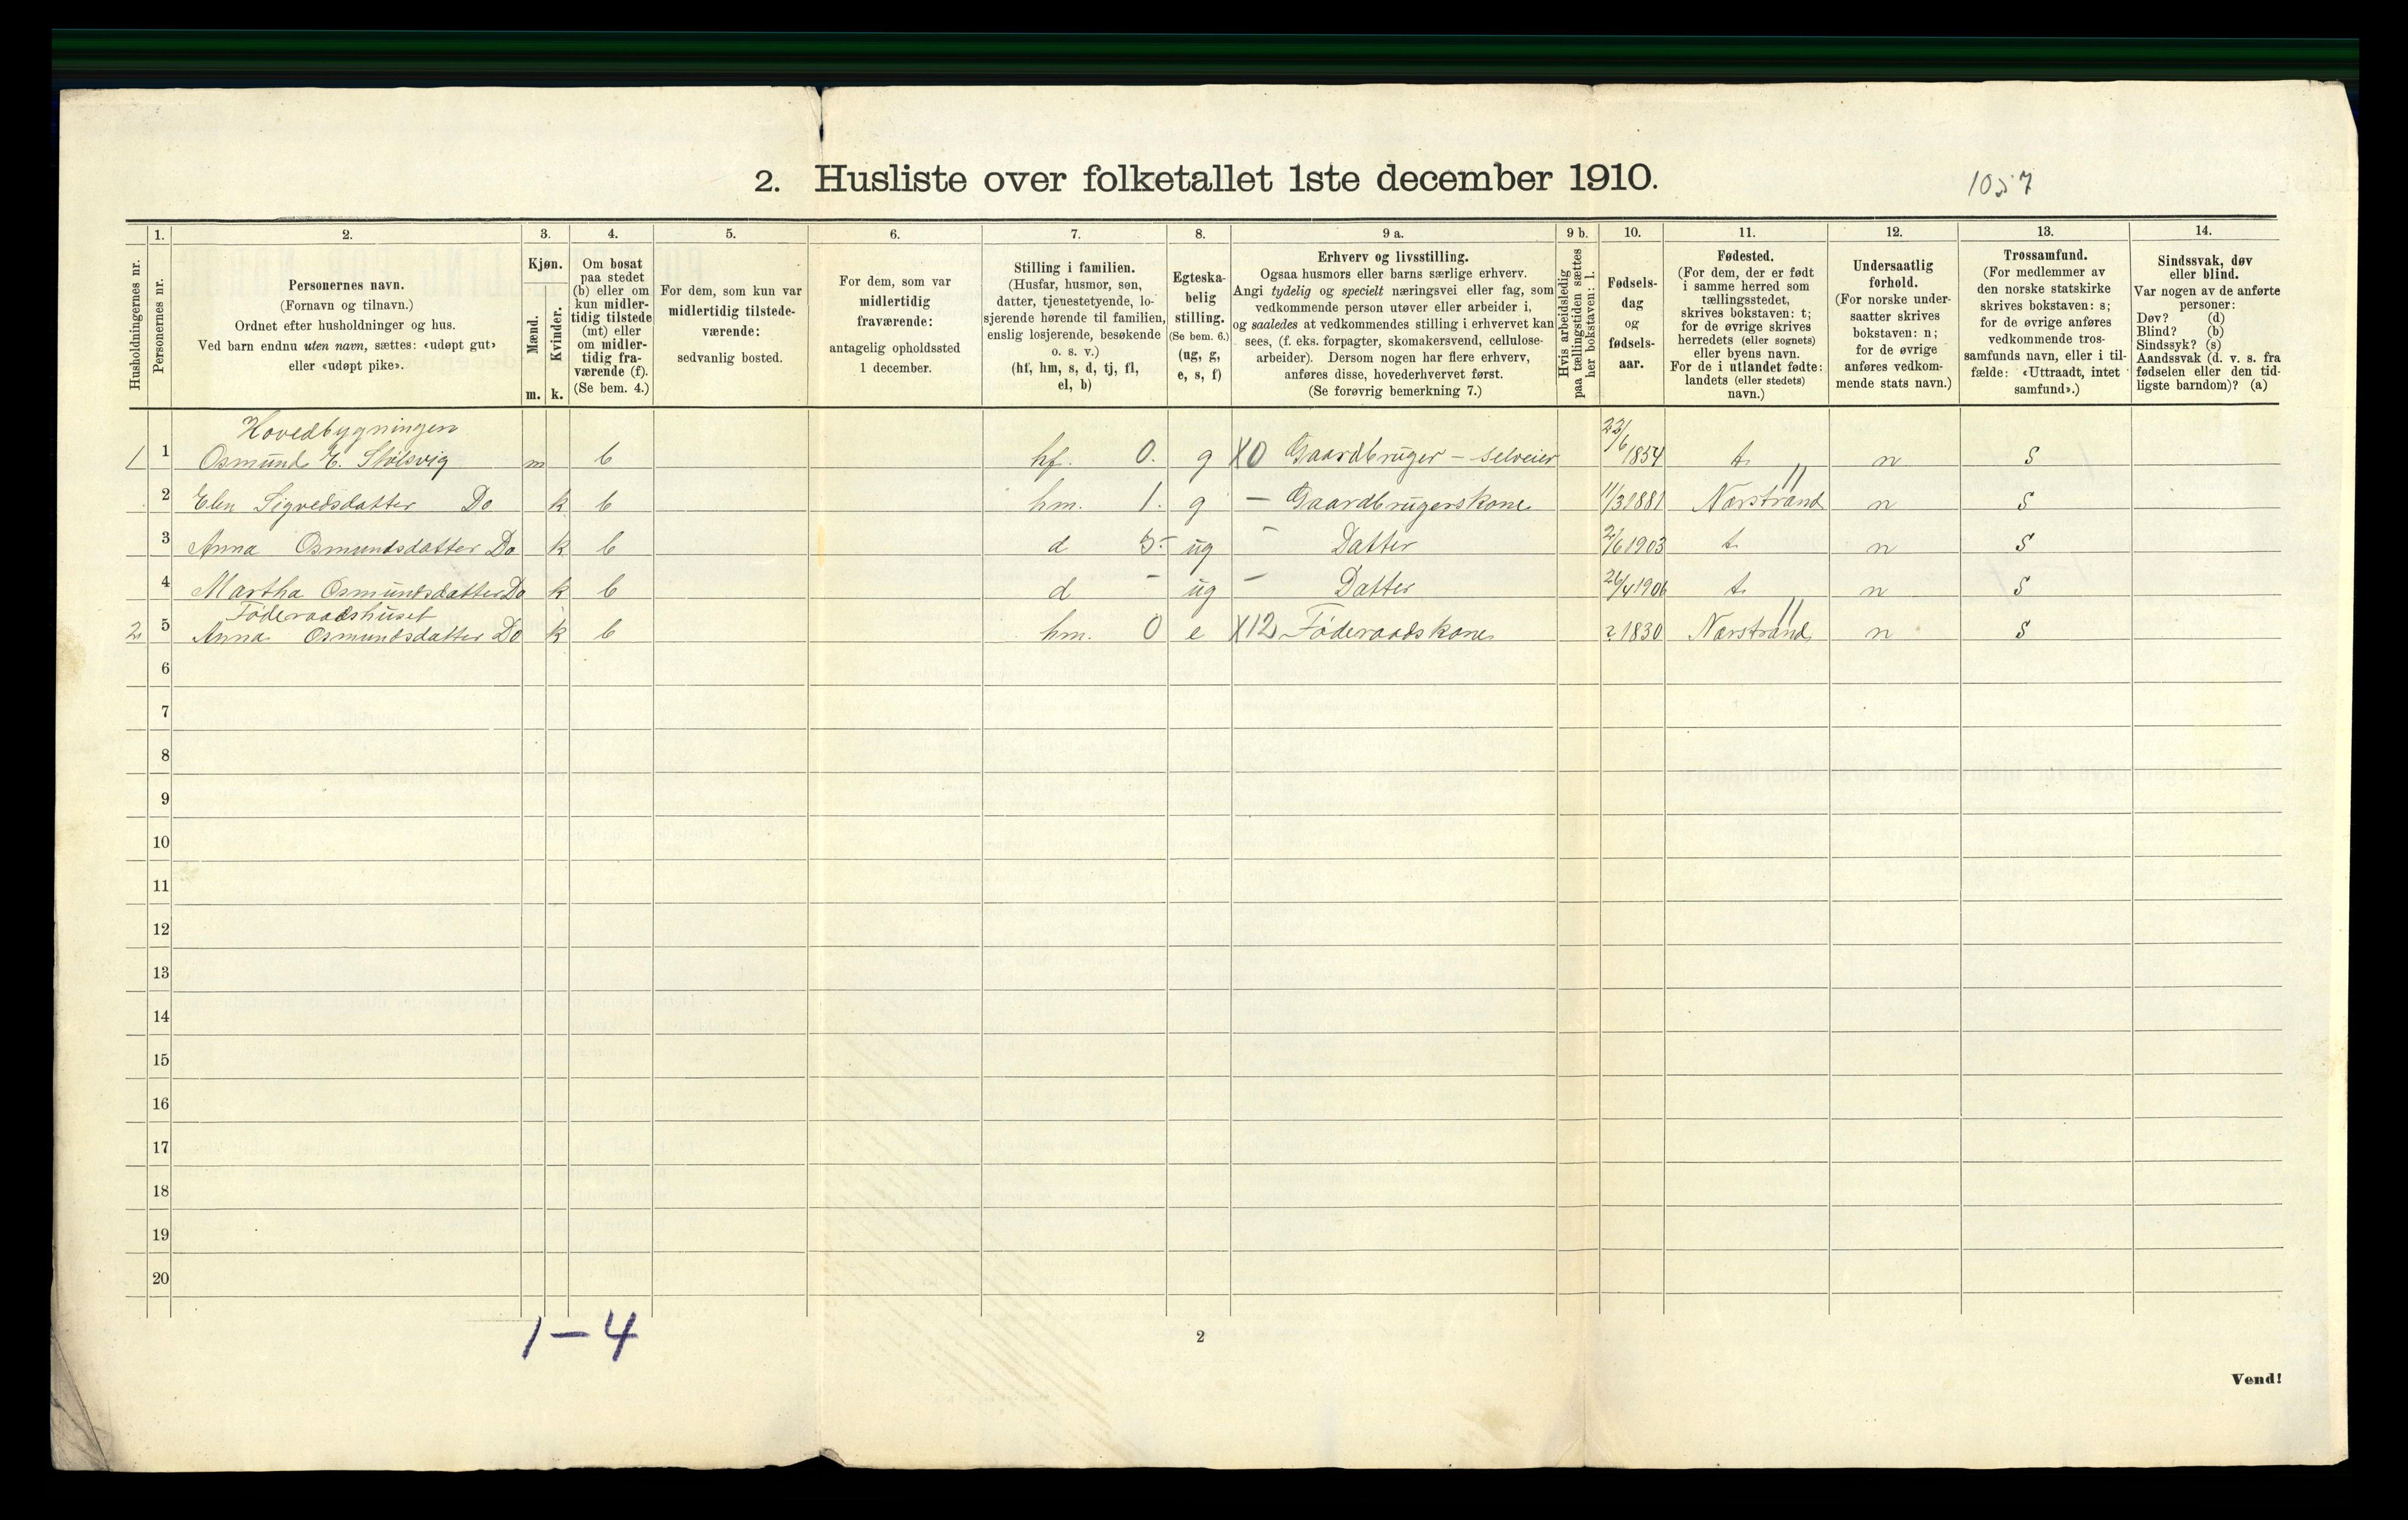 2. Husliste over folketallet 1ste december 1910.
1057
Husholdningernes nr.
1.
Personernes nr.
2.
Personernes navn.
(Fornavn og tilnavn.)
Ordnet efter husholdninger og hus.
Ved barn endnu uten navn, sættes: «udøpt gut»
eller «udøpt pike».
3.
Kjøn.
Mænd.
m.
Kvinder.
k.
4.
Om bosat
paa stedet
(b) eller om
kun midler-
tidig tilstede
(mt) eller
om midler-
tidig fra-
værende (f).
(Se bem. 4.)
5.
For dem, som kun var
midlertidig tilstede-
værende:
sedvanlig bosted.
6.
For dem, som var
midlertidig
fraværende:
antagelig opholdssted
1 december.
7.
Stilling i familien.
(Husfar, husmor, søn,
datter, tjenestetyende, lo-
sjerende hørende til familien,
enslig losjerende, besøkende
o. s. v.)
(hf, hm, s, d, tj, fl,
el, b)
8.
Egteska-
belig
stilling.
(Se bem. 6.)
(ug, g,
e, s, f)
9 a.
Erhverv og livsstilling.
Ogsaa husmors eller barns særlige erhverv.
Angi tydelig og specielt næringsvei eller fag, som
vedkommende person utøver eller arbeider i,
og saaledes at vedkommendes stilling i erhvervet kan
sees, (f. eks. forpagter, skomakersvend, cellulose-
arbeider). Dersom nogen har flere erhverv,
anføres disse, hovederhvervet først.
(Se forøvrig bemerkning 7.)
9 b.
Hvis arbeidsledig
paa tællingstiden sættes
her bokstaven: l.
10.
Fødsels-
dag
og
fødsels-
aar.
11.
Fødested.
(For dem, der er født
i samme herred som
tællingsstedet,
skrives bokstaven: t;
for de øvrige skrives
herredets (eller sognets)
eller byens navn.
For de i utlandet fødte:
landets (eller stedets)
navn.)
12.
Undersaatlig
forhold.
(For norske under-
saatter skrives
bokstaven: n;
for de øvrige
anføres vedkom-
mende stats navn.)
13.
Trossamfund.
(For medlemmer av
den norske statskirke
skrives bokstaven: s;
for de øvrige anføres
vedkommende tros-
samfunds navn, eller i til-
fælde: «Uttraadt, intet
samfund».)
14.
Sindssvak, døv
eller blind.
Var nogen av de anførte
personer:
Døv? (d)
Blind? (b)
Sindssyk? (s)
Aandssvak (d. v. s. fra
fødselen eller den tid-
ligste barndom)? (a)
Hovedbygningen
1 1 Osmund E. Stølsvig m b hf. 0. g X0 Gaardbruger - selveier 22/6 1854 t. n s
2 Elen Sigvedsdatter Do k b hm. 1. g - Gaardbrugerskone 11/3 1881 Narstrand n s
3 Anna Osmundsdatter Do k b d 5. ug - Datter 2/6 1903 t. n s
4 Martha Osmundsdatter Do k b d - ug - Datter 26/4 1906 t. n s
Føderaadshuset
2 5 Anna Osmundsdatter Do k b hm. 0 e X12 Føderaadskone 1830 Narstrand n s
6
7
8
9
10
11
12
13
14
15
16
17
18
19
20
1-4
2
Vend!